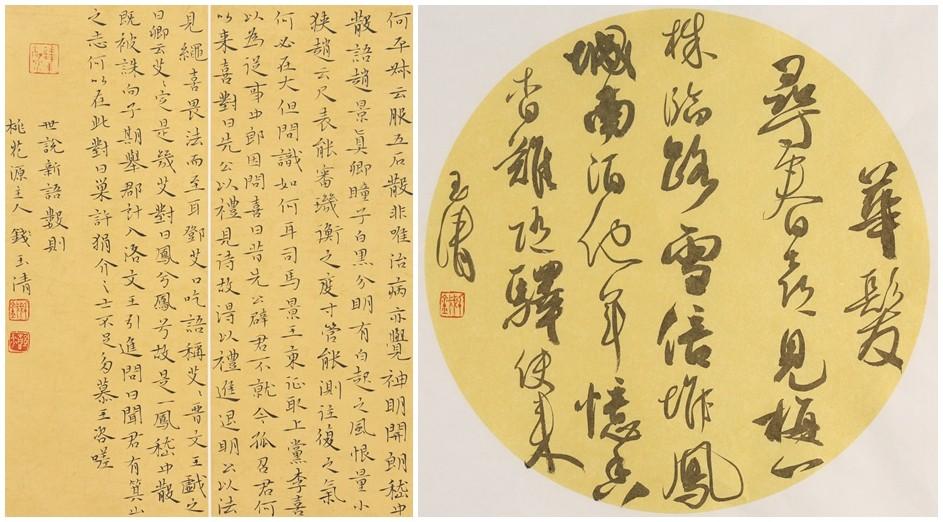 何平叔云服五石散非唯治病亦覺神明開朗嵇中
散語趙景真卿瞳子白黑分明有白起之風恨量小
狹趙云尺表能審璣衡之度寸管能測往復之氣
何必在大但問識如何耳司馬景王東征取上黨李喜
以為從事中郎因問喜曰昔先公辟君不就今孤召君何
以来喜對曰先公以禮見待故得以禮進退明公以法
見繩喜畏法而至耳鄧艾口吃語稱艾〻晉文王戲之
曰卿云艾〻定是幾艾對曰鳳兮鳳兮故是一鳳嵇中散
既被誅向子期舉郡計入洛文王引進問曰聞君有箕山
之志何以在此對曰巢許狷介之士不足多慕王咨嗟
世說新語數則
桃花源主人錢玉清
華髮
尋春喜見梅一
株臨路雪倍堆鳳
城南陌他年憶香
杳難隨驛使來
玉清